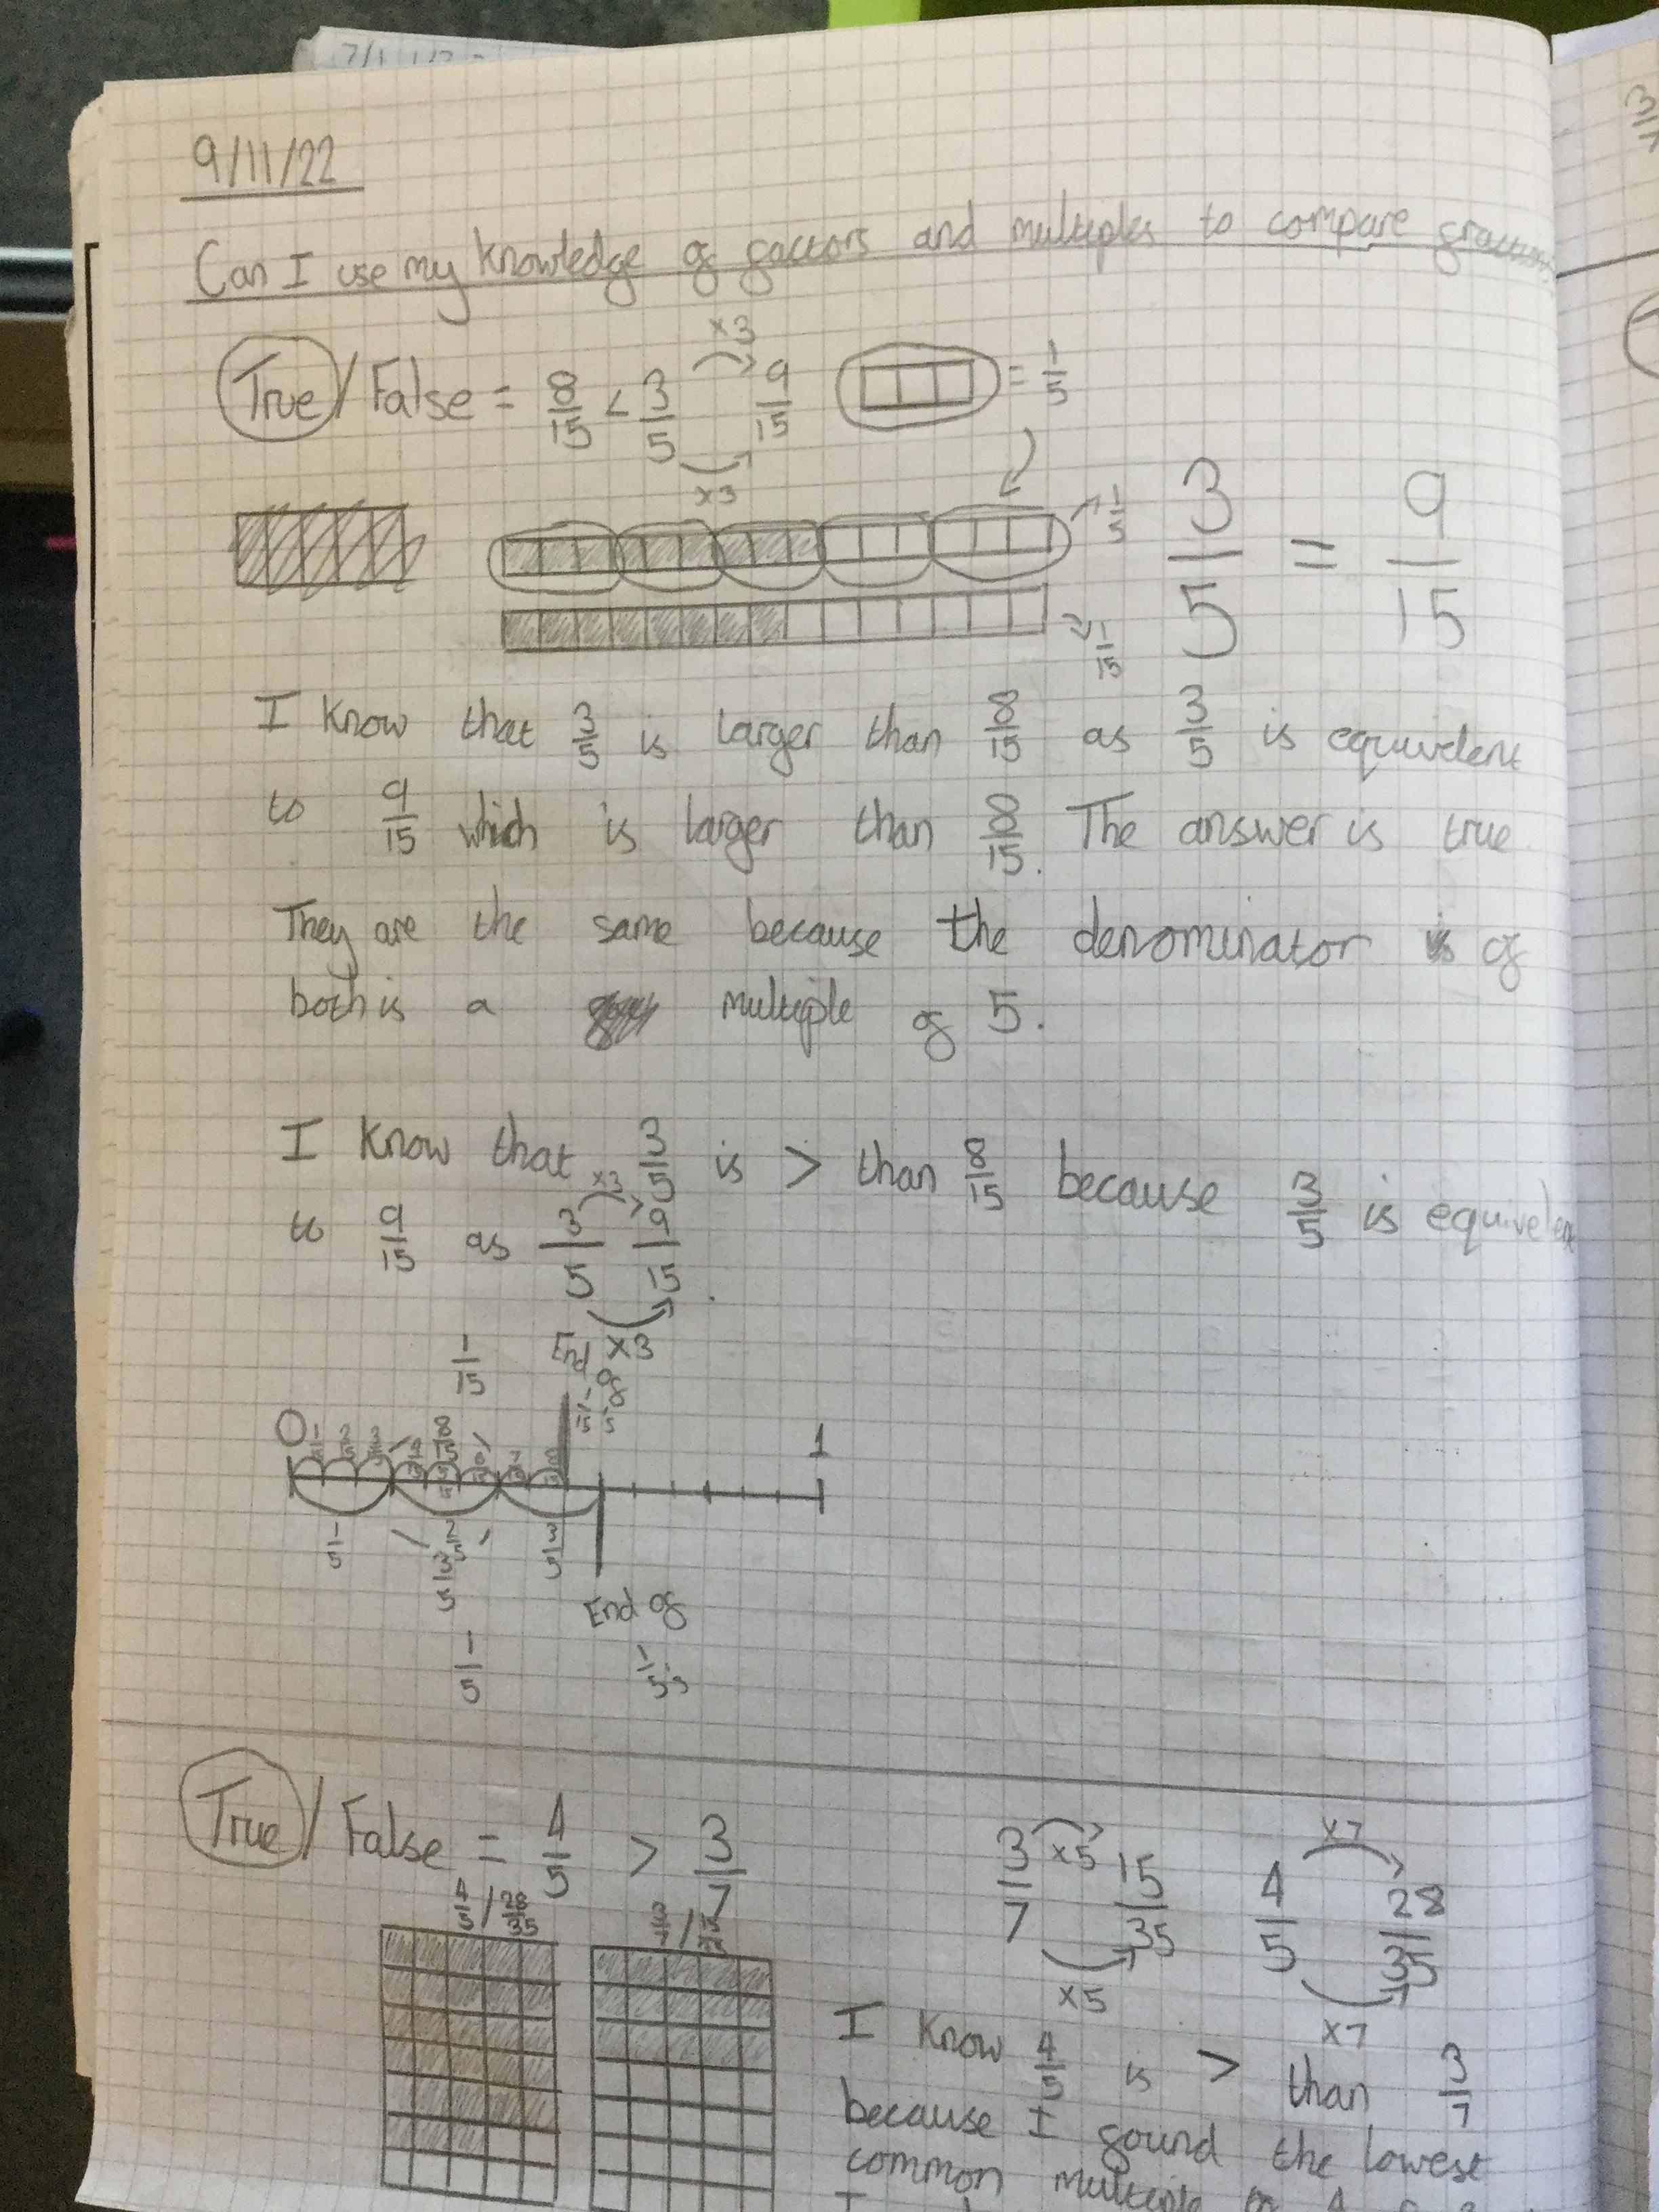 9/11/22
Can I use my knowledge of factors and multiples to compare fractions
True / False = 8/15 < 3/5 ×3 ×3 9/15 = 1/5
1/5
3/5 = 9/15
1/15
I know that 3/5 is larger than 8/15 as 3/5 is equivelent
to 9/15 which is larger than 8/15. The answer is true.
They are the same because the denominator of
both is a multiple of 5.
I know that 3/5 is > than 8/15 because 3/5 is equivelen
to 9/15 as 3/5 ×3 9/15 ×3.
1/15 End of
0 1
1/5 2/5 3/5
3/5
End of
1/5
True / False = 4/5 > 3/7
4/5 / 28/35
3/7 ×5 15/35 ×5
4/5 ×7 28/35 ×7
I know 4/5 is > than 3/7
because I found the lowest
common multiple